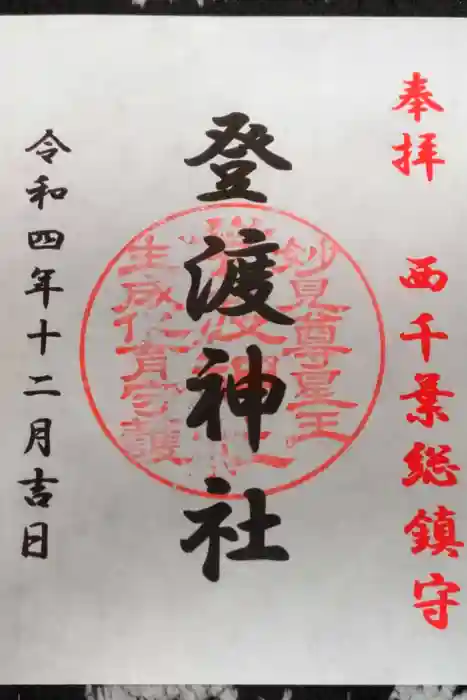 奉拝 西千葉総鎮守
登渡神社
妙見尊皇王
登渡神社
生成化育守護
令和四年十二月吉日